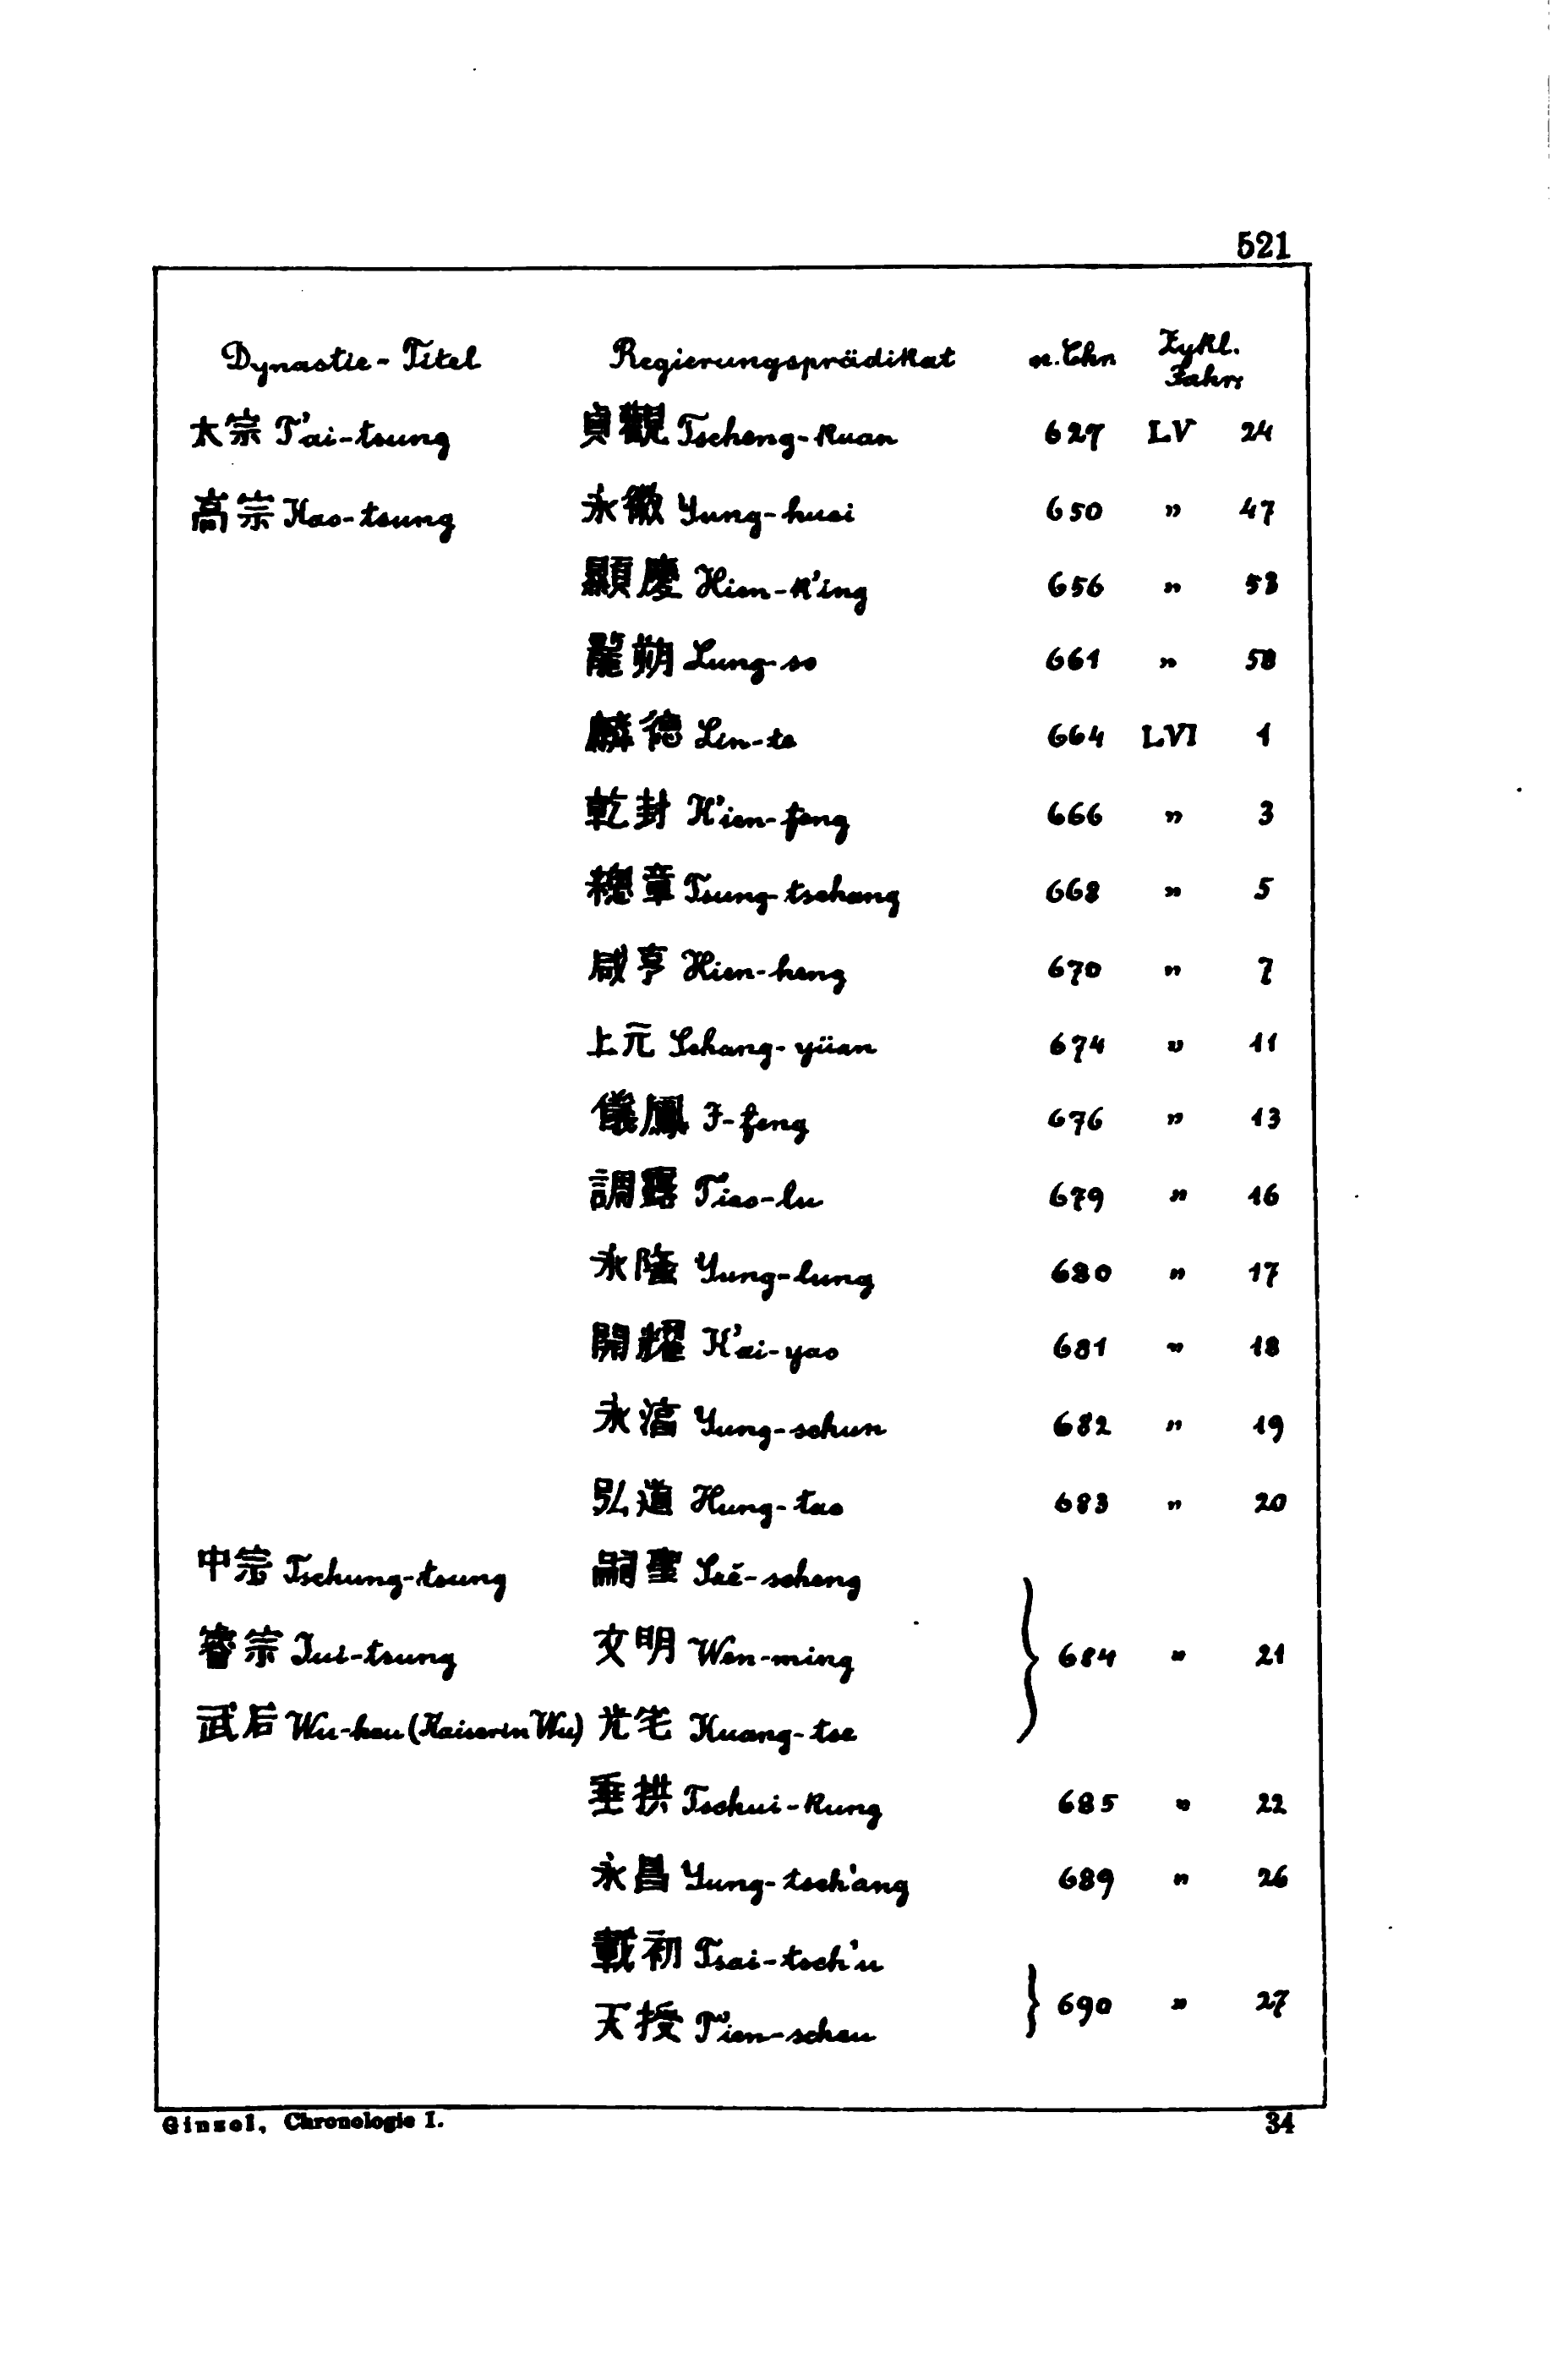 521
Dynastie-Titel Regierungsprädikat n. Chr. Zykl. Jahr:
太宗 T'ai-tsung 貞觀 Tscheng-kuan 627 LV 24
高宗 Kao-tsung 永徽 Yung-huei 650 " 47
顯慶 Hien-k'ing 656 " 53
龍朔 Lung-so 661 " 58
麟德 Lin-te 664 LVI 1
乾封 K'ien-feng 666 " 3
總章 Tsung-tschang 668 " 5
咸亨 Hien-heng 670 " 7
上元 Schang-yüan 674 " 11
儀鳳 I-feng 676 " 13
調露 T'iao-lu 679 " 16
永隆 Yung-lung 680 " 17
開耀 K'ai-yao 681 " 18
永湻 Yung-schun 682 " 19
弘道 Hung-tao 683 " 20
中宗 Tschung-tsung 嗣聖 Szĕ-scheng
睿宗 Jui-tsung 文明 Wen-ming 684 " 21
武后 Wu-hou (Kaiserin Wu) 光宅 Kuang-tse
垂拱 Tschui-kung 685 " 22
永昌 Yung-tsch'ang 689 " 26
載初 Tsai-tsch'u
690 " 27
天授 T'ien-schou
Ginzel, Chronologie I. 34